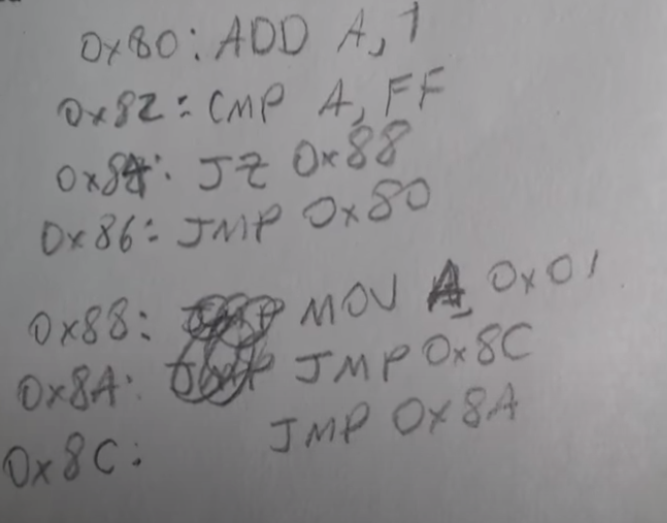 0x80: ADD A, 1
0x82: CMP A, FF
0x84: JZ 0x88
0x86: JMP 0x80
0x88: MOV A, 0x01
0x8A: JMP 0x8C
0x8C: JMP 0x8A